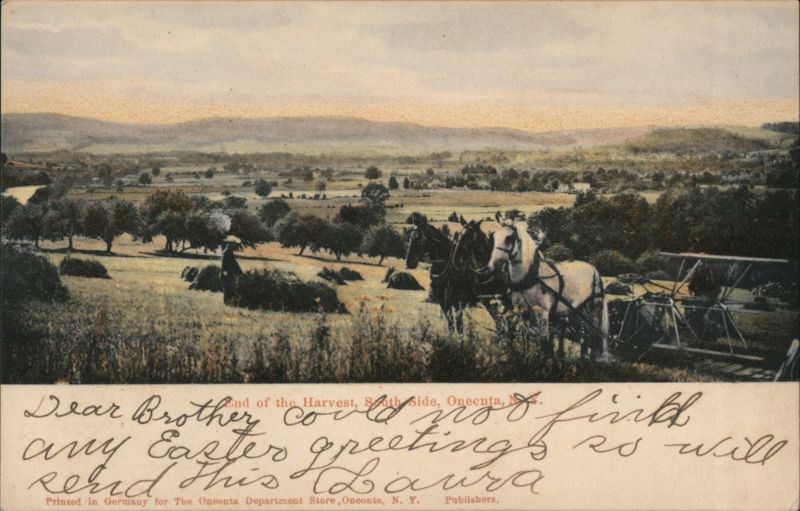 End of the Harvest, South Side, Oneonta, N. Y.
Dear Brother could not find
any Easter greetings so will
send this Laura
Printed in Germany for The Oneonta Department Store, Oneonta, N. Y. Publishers.